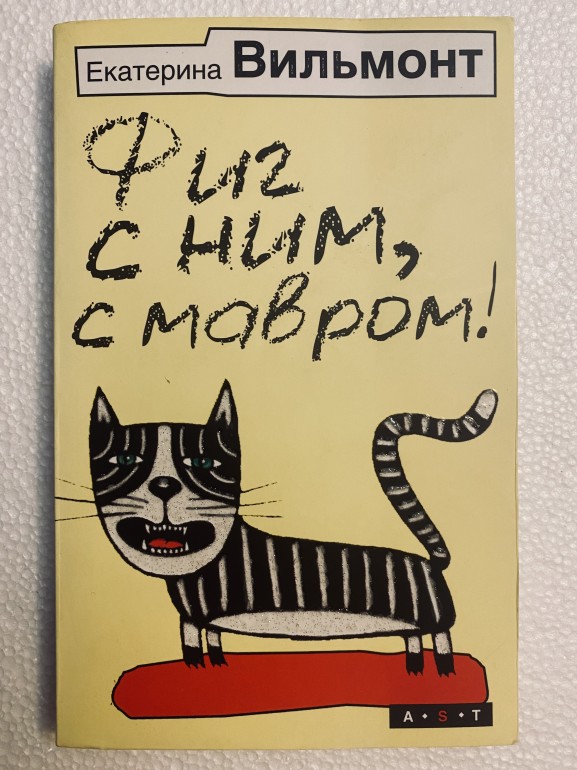 Екатерина Вильмонт
Фиг
с ним,
с мавром!
A•S•T